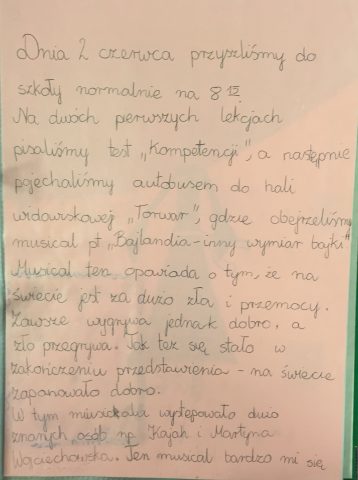 Dnia 2 czerwca przyszliśmy do
szkoły normalnie na 8 15.
Na dwóch pierwszych lekcjach
pisaliśmy test „Kompetencji", a następnie
pojechaliśmy autobusem do hali
widowskowej „Torwar", gdzie obejrzeliśmy
musical pt „Bajlandia-inny wymiar bajki"
Musical ten opowiada o tym, że na
świecie jest za dużo zła i przemocy.
Zawsze wygrywa jednak dobro, a
zło przegrywa. Tak też się stało w
zakończeniu przedstawienia - na świecie
zapanowało dobro.
W tym miusicalu występowało dużo
znanych osób np Kajah i Martyna
Wojciechowska. Ten musical bardzo mi się